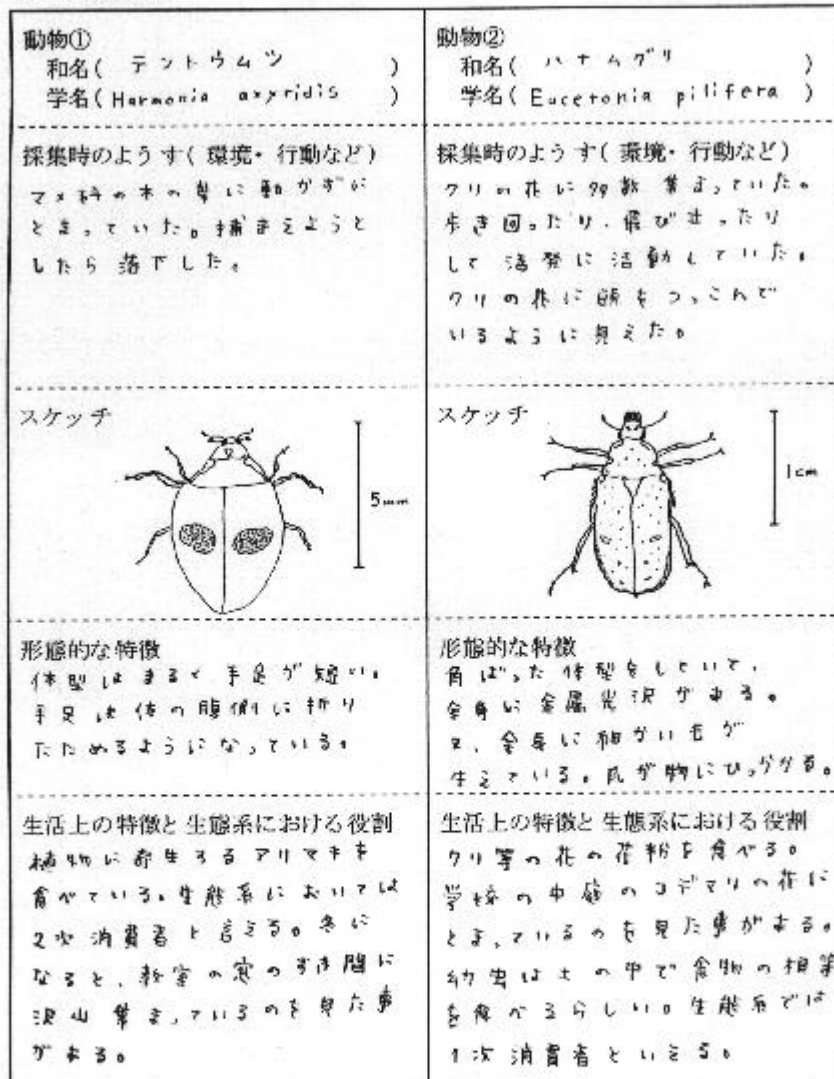 動物①
和名( テントウムツ )
学名( Harmonia axyridis )
採集時のようす( 環境・行動など)
マメ科の木の葉に動かずに
とまっていた。捕まえようと
したら落下した。
スケッチ
5mm
形態的な特徴
体型はまるく手足が短い。
手足は体の腹側に折り
たためるようになっている。
生活上の特徴と生態系における役割
植物に寄生するアリマキを
食べている。生態系においては
2次消費者と言える。冬に
なると、教室の窓のすき間に
沢山集まっているのを見た事
がある。
動物②
和名( ハナムグリ )
学名( Eucetonia pilifera )
採集時のようす( 環境・行動など)
クリの花に多数集まっていた。
歩き回ったり、飛び立ったり
して活発に活動していた。
クリの花に頭をつっこんで
いるように見えた。
スケッチ
1cm
形態的な特徴
角ばった体型をしていて、
全身に金属光沢がある。
又、全身に細かい毛が
生えている。爪が物にひっかかる。
生活上の特徴と生態系における役割
クリ等の花の花粉を食べる。
学校の中庭のコデマリの花に
とまっているのを見た事がある。
幼虫は土の中で食物の根等
を食べるらしい。生態系では
1次消費者といえる。